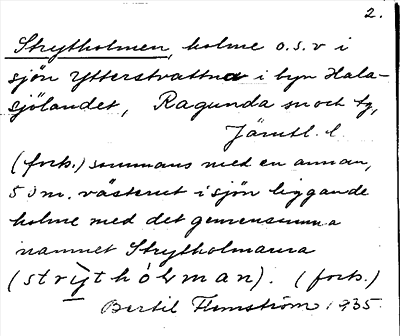 2.
Strytholmen, holme o.s.v i
sjön Ytterstrattna i byn Hala-
sjölandet, Ragunda sn och tg,
Jämtl. l.
(forts.) sammans med en annan,
50 m. västerut i sjön liggande
holme med det gemensamma
namnet Strytholmarna
(forts.)
Bertil Flemström 1935.